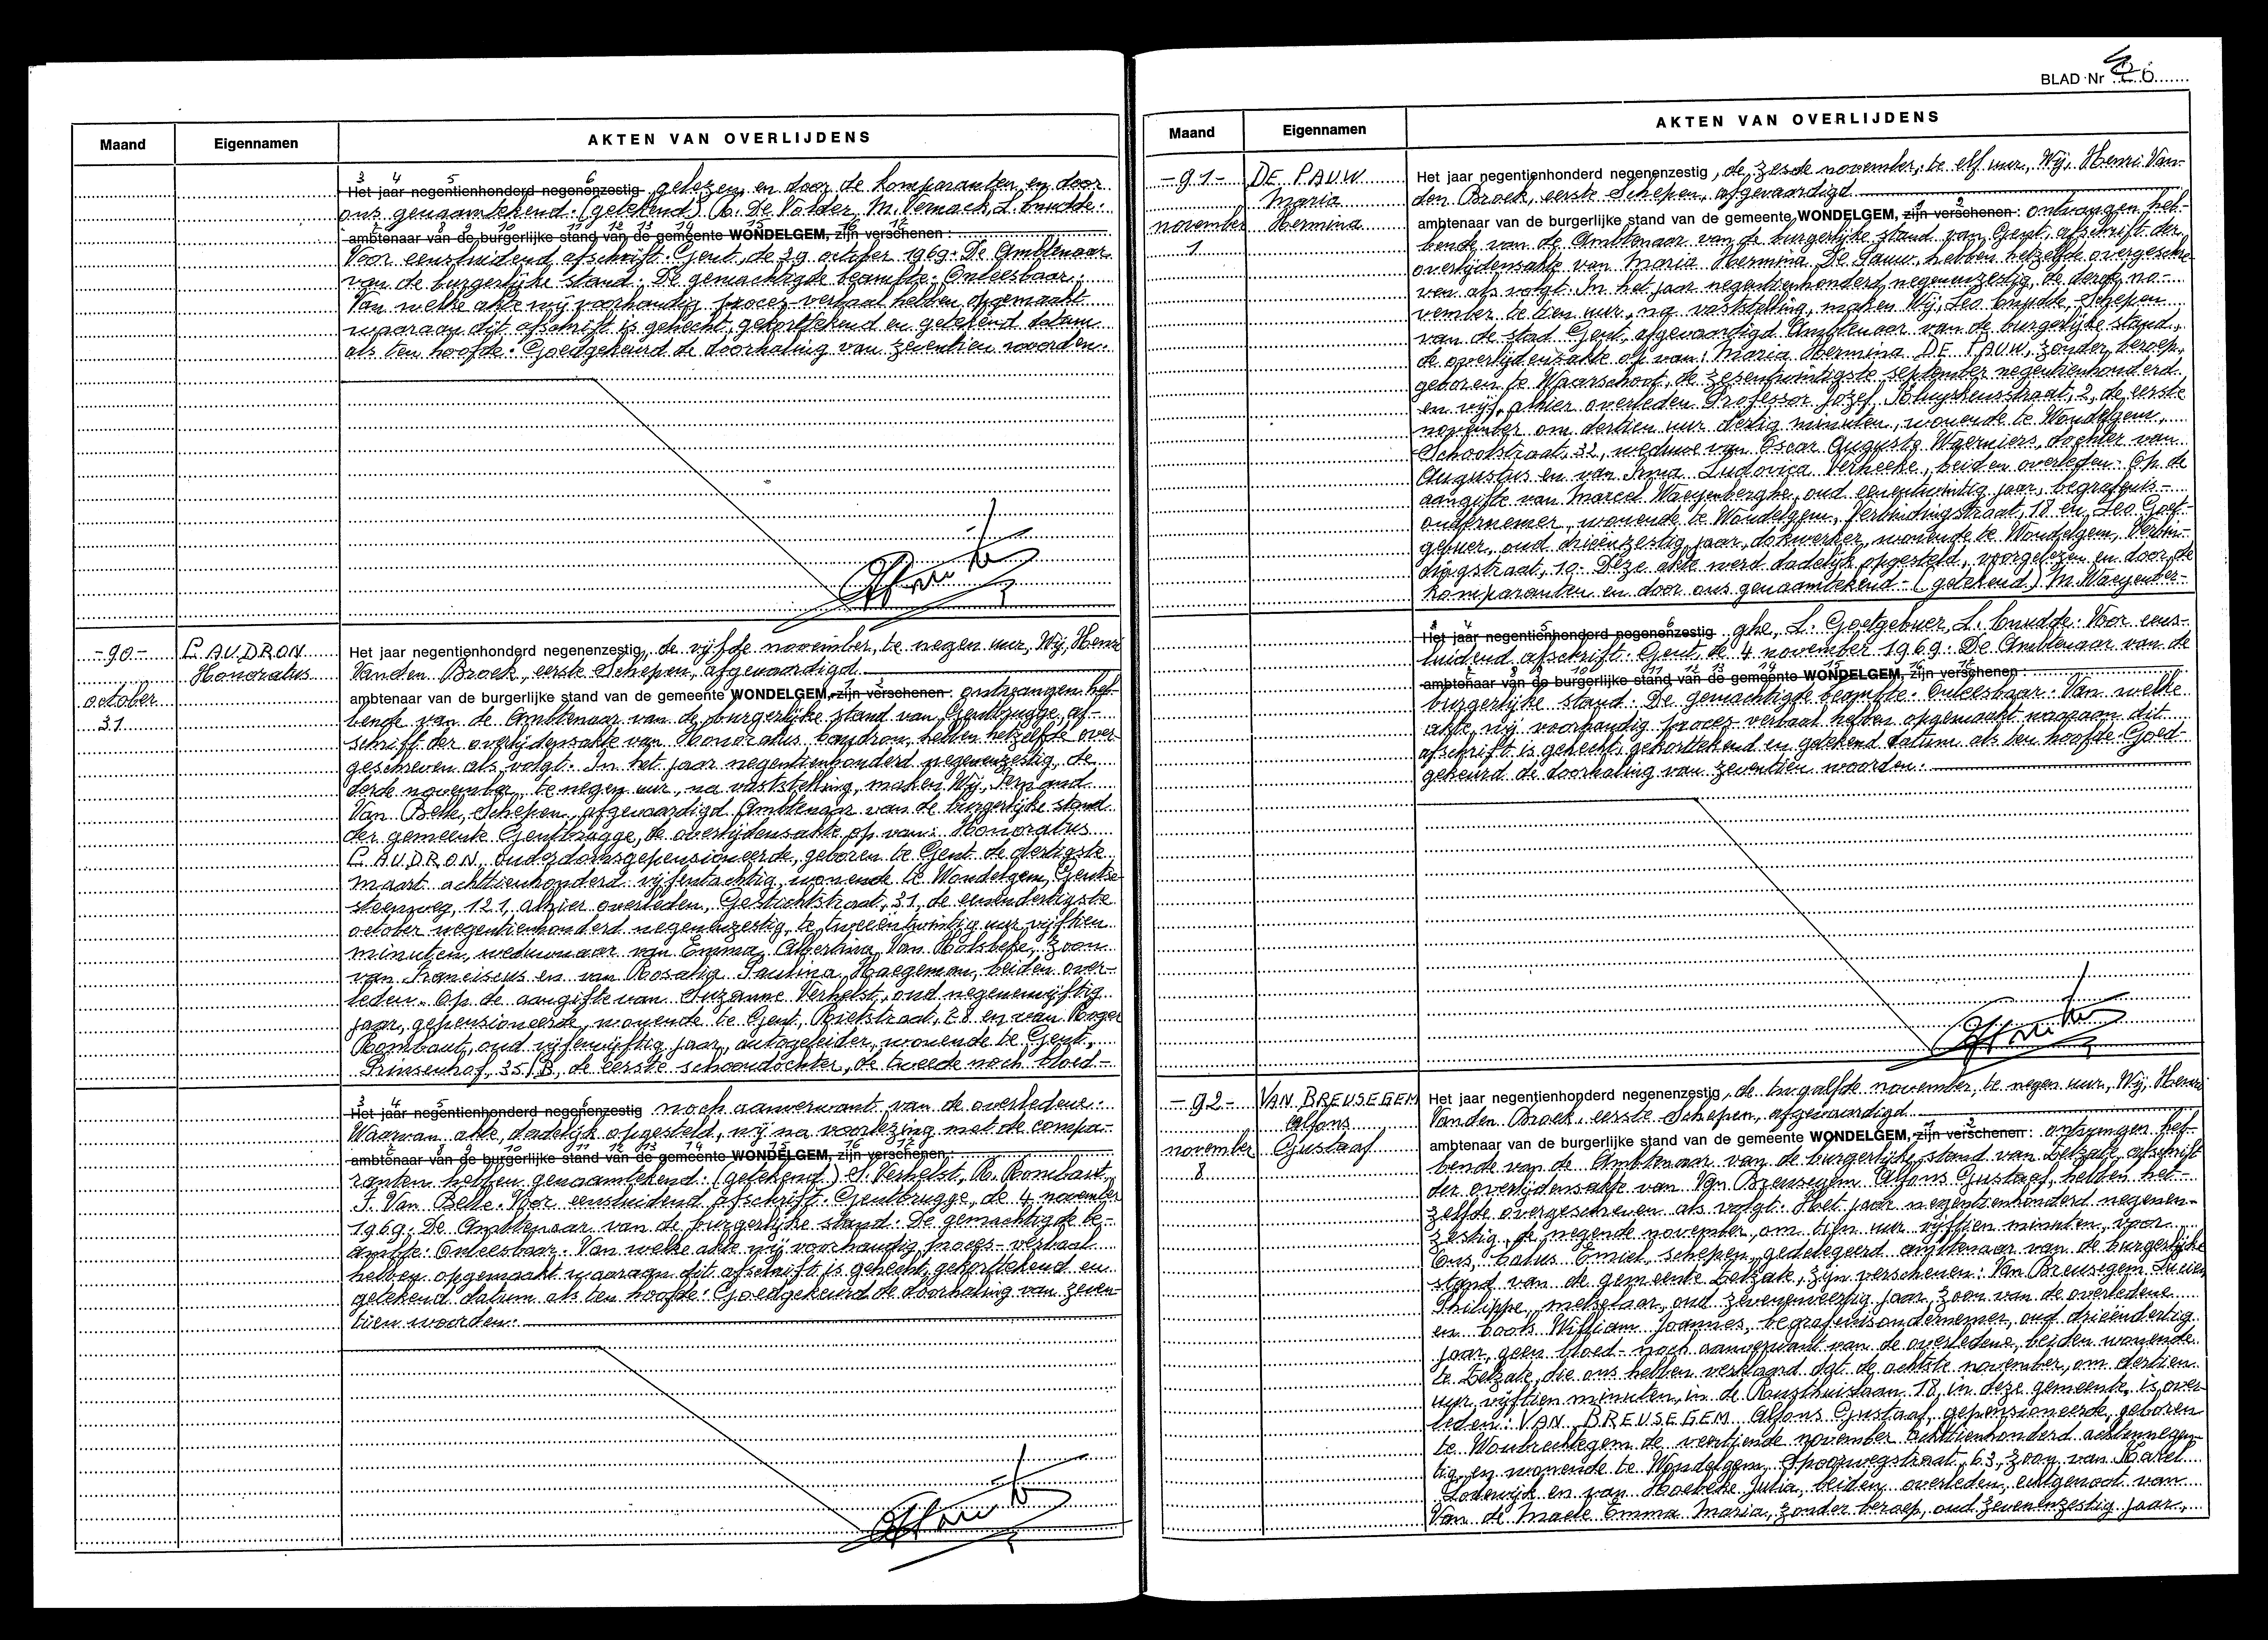 Maand Eigennamen AKTEN VAN OVERLIJDENS
3 4 5 6
Het jaar negentienhonderd negenenzestig gelezen en door de komparanten en door
ons genaamtekend. (getekend) A. De Volder, M. Vernack, L. Cnudde.
ambtenaar van de burgerlijke stand van de gemeente WONDELGEM, zijn verschenen:
Voor eensluidend afschrift. Gent, de 29 october 1969. De Ambtenaar
van de burgerlijke stand. De gemachtigde beambte. Onleesbaar.
Van welke akte wij voorhandig proces-verbaal hebben opgemaakt
waaraan dit afschrift is gehecht, gekorttekend en getekend datum
als ten hoofde. Goedgekeurd de doorhaling van zeventien woorden.
-90- CAUDRON
Honoratus
october
31
Het jaar negentienhonderd negenenzestig, de vijfde november, te negen uur, Wij, Henri
Vanden Broek, eerste Schepen, afgevaardigd
ambtenaar van de burgerlijke stand van de gemeente WONDELGEM, zijn verschenen: ontvangen heb-
bende van de Ambtenaar van de burgerlijke stand van Gentbrugge, af-
schrift der overlijdensakte van Honoratus Caudron, hebben hetzelfde over-
geschreven als volgt. In het jaar negentienhonderd negenenzestig, de
derde november, te negen uur, na vaststelling, maken Wij, Fernand
Van Belle, Schepen, afgevaardigd Ambtenaar van de burgerlijke stand
der gemeente Gentbrugge, de overlijdensakte op van: Honoratus
CAUDRON, ouderdomsgepensioneerde, geboren te Gent de dertigste
maart achttienhonderd vijfentachtig, wonende te Wondelgem, Gentse-
steenweg, 121, alhier overleden, Gestichtstraat, 31, de eenendertigste
october negentienhonderd negenenzestig, te tweeëntwintig uur vijftien
minuten, weduwnaar van Emma Albertina Van Holsbeke, zoon
van Franciscus en van Rosalia Paulina Haegeman, beiden over-
leden. Op de aangifte van Suzanne Verhelst, oud negenenvijftig
jaar, gepensioneerde, wonende te Gent, Rietstraat, 28 en van Roger
Rombaut, oud vijfenvijftig jaar, autogeleider, wonende te Gent,
Prinsenhof, 35/B, de eerste schoondochter, de tweede noch bloed-
3 4 5 6
Het jaar negentienhonderd negenenzestig noch aanverwant van de overledene.
Waarvan akte, dadelijk opgesteld, wij na voorlezing met de compa-
ambtenaar van de burgerlijke stand van de gemeente WONDELGEM, zijn verschenen:
ranten hebben genaamtekend. (getekend) S. Verhelst, R. Rombaut,
F. Van Belle. Voor eensluidend afschrift. Gentbrugge, de 4 november
1969. De Ambtenaar van de burgerlijke stand. De gemachtigde be-
ambte. Onleesbaar. Van welke akte wij voorhandig proces-verbaal
hebben opgemaakt waaraan dit afschrift is gehecht, gekorttekend en
getekend datum als ten hoofde. Goedgekeurd de doorhaling van zeven-
tien woorden.
BLAD Nr 26
Maand Eigennamen AKTEN VAN OVERLIJDENS
-91- DE PAUW
Maria
november Hermina
1
Het jaar negentienhonderd negenenzestig, de zesde november, te elf uur, Wij, Henri Van-
den Broek, eerste Schepen, afgevaardigd
ambtenaar van de burgerlijke stand van de gemeente WONDELGEM, zijn verschenen: ontvangen heb-
bende van de Ambtenaar van de burgerlijke stand van Gent, afschrift der
overlijdensakte van Maria Hermina De Pauw, hebben hetzelfde overgeschre-
ven als volgt. In het jaar negentienhonderd negenenzestig, de derde no-
vember te tien uur, na vaststelling, maken Wij, Leo Cnudde, Schepen
van de stad Gent, afgevaardigd Ambtenaar van de burgerlijke stand,
de overlijdensakte op van: Maria Hermina DE PAUW, zonder beroep,
geboren te Waarschoot, de zesentwintigste september negentienhonderd
en vijf, alhier overleden Professor Jozef Kluyskensstraat, 2, de eerste
november om dertien uur dertig minuten, wonende te Wondelgem,
Schoolstraat, 32, weduwe van Oscar Auguste Waerniers, dochter van
Augustus en van Irma Ludovica Verheeke, beiden overleden. Op de
aangifte van Marcel Waeyenberghe, oud eenentwintig jaar, begrafenis-
ondernemer, wonende te Wondelgem, Verbindingstraat, 18 en Leo Goet-
gebuer, oud drieënzestig jaar, dokwerker, wonende te Wondelgem, Verbin-
dingstraat, 19. Deze akte werd dadelijk opgesteld, voorgelezen en door de
komparanten en door ons genaamtekend. (getekend) M. Waeyenber-
3 4 5 6
Het jaar negentienhonderd negenenzestig ghe, L. Goetgebuer, L. Cnudde. Voor eens-
luidend afschrift. Gent, de 4 november 1969. De Ambtenaar van de
ambtenaar van de burgerlijke stand van de gemeente WONDELGEM, zijn verschenen:
burgerlijke stand. De gemachtigde beambte. Onleesbaar. Van welke
akte wij voorhandig proces-verbaal hebben opgemaakt waaraan dit
afschrift is gehecht, gekorttekend en getekend datum als ten hoofde. Goed-
gekeurd de doorhaling van zeventien woorden.
-92- VAN BREUSEGEM
Alfons
november Gustaaf
8
Het jaar negentienhonderd negenenzestig, de twaalfde november, te negen uur, Wij, Henri
Vanden Broek, eerste Schepen, afgevaardigd
ambtenaar van de burgerlijke stand van de gemeente WONDELGEM, zijn verschenen: ontvangen heb-
bende van de Ambtenaar van de burgerlijke stand van Zelzate, afschrift
der overlijdensakte van Van Breusegem Alfons Gustaaf, hebben het-
zelfde overgeschreven als volgt. Het jaar negentienhonderd negenen-
zestig, de negende november, om tien uur vijftien minuten, voor
Ons, Calus Emiel, schepen, gedelegeerd ambtenaar van de burgerlijke
stand van de gemeente Zelzate, zijn verschenen: Van Breusegem Lucien
Philippe, metselaar, oud zevenenveertig jaar, zoon van de overledene
en Cools William Joannes, begrafenisondernemer, oud drieëndertig
jaar, geen bloed- noch aanverwant van de overledene, beiden wonende
te Zelzate, die ons hebben verklaard dat de achtste november, om dertien
uur vijftien minuten, in de Rusthuislaan 18, in deze gemeente, is over-
leden: VAN BREUSEGEM Alfons Gustaaf, gepensioneerde, geboren
te Woubrechtegem de veertiende november achttienhonderd achtennegen-
tig, en wonende te Wondelgem, Spoorwegstraat, 63, zoon van Karel
Lodewijk en van Hoebeke Julia, beiden overleden, echtgenoot van
Van de Maele Emma Maria, zonder beroep, oud zevenenzestig jaar,